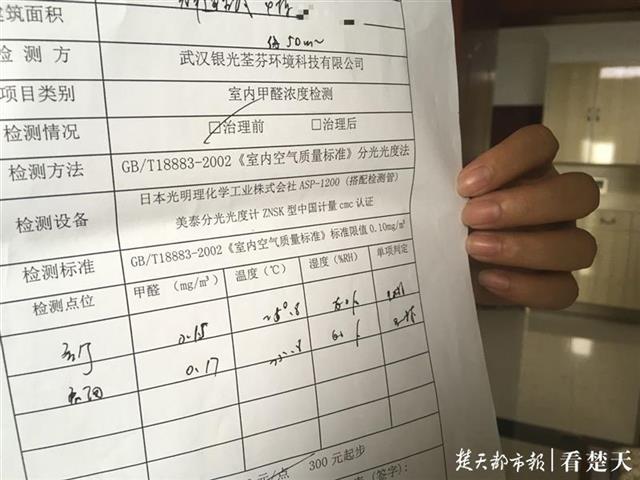 建筑面积
50m
检测方 武汉银光荃芬环境科技有限公司
项目类别 室内甲醛浓度检测
检测情况 □治理前 □治理后
检测方法 GB/T18883-2002《室内空气质量标准》分光光度法
检测设备 日本光明理化学工业株式会社 ASP-1200 (搭配检测管)
美泰分光光度计 ZNSK 型中国计量 cmc 认证
检测标准 GB/T18883-2002《室内空气质量标准》标准限值 0.10mg/m³
检测点位 甲醛 (mg/m³) 温度(℃) 湿度(%RH) 单项判定
0.15
0.17
元/点 300 元起步
(签字):
楚天都市报 | 看楚天